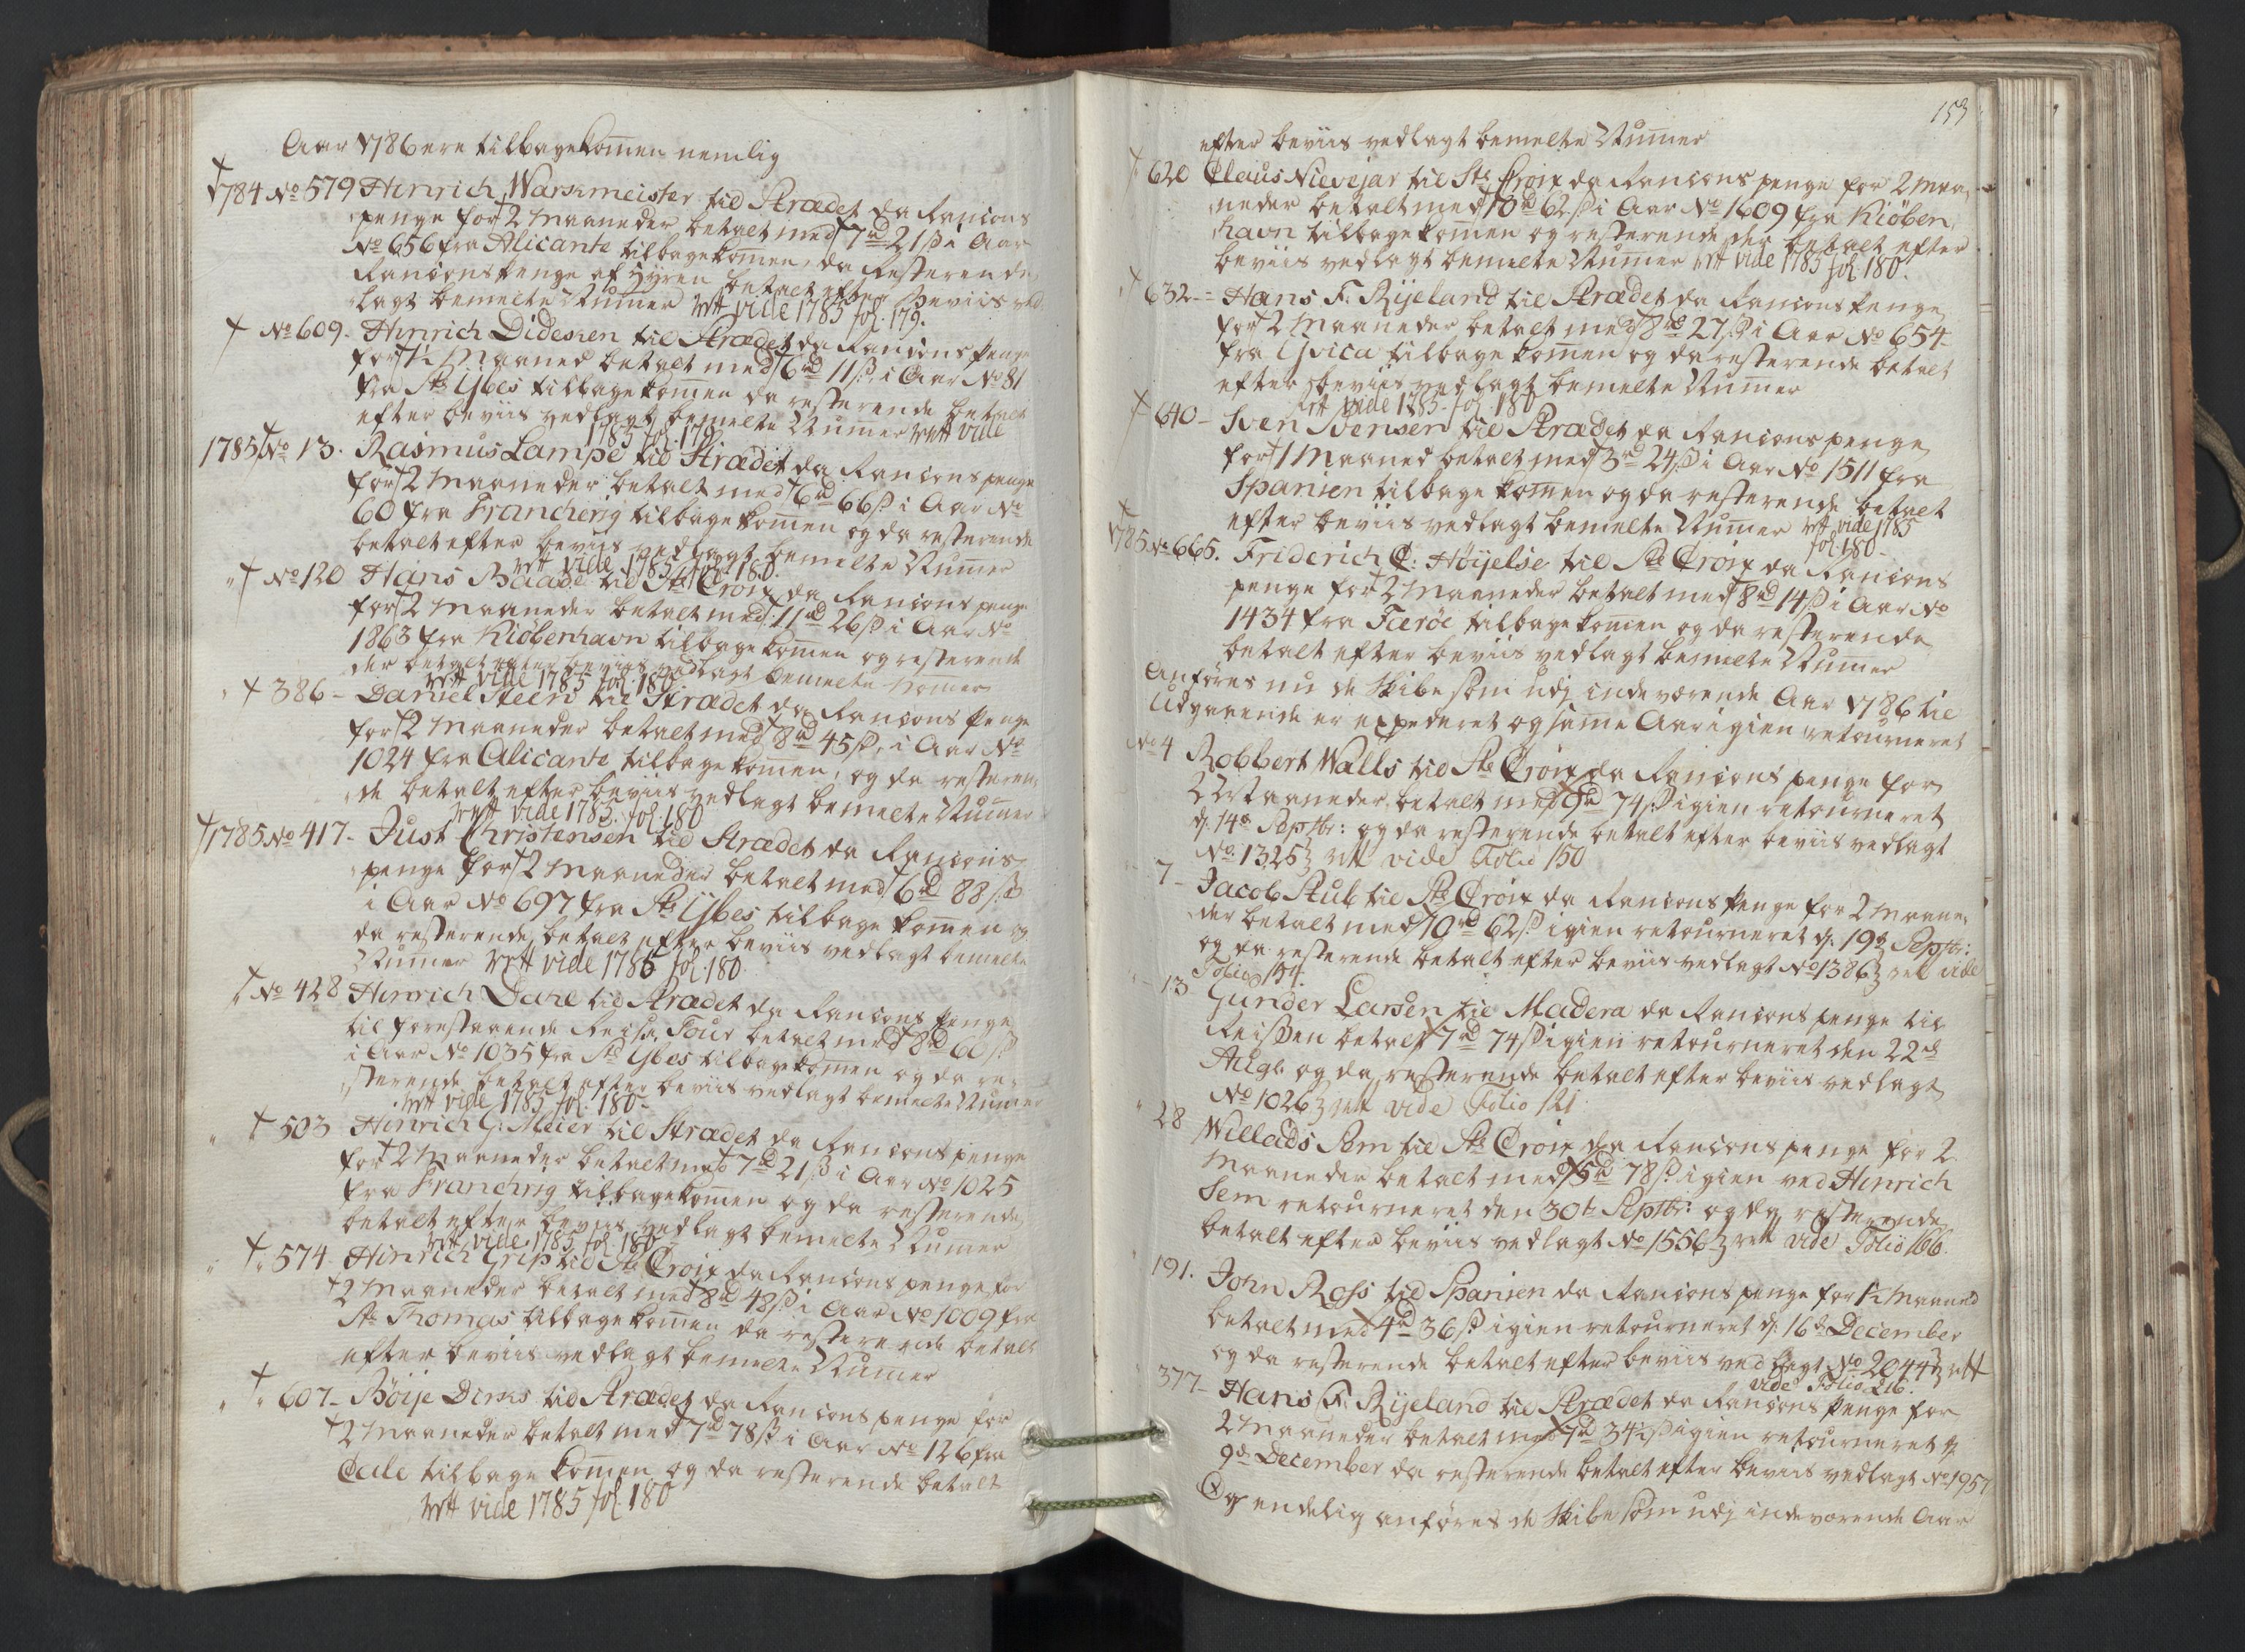 Aar 1786 ere tilbagekom̄en nemlig
1784 No 579 Hinrich Warkmeister til Strædet da Rancions
penge for 2 Maaneder betalt med 7 rd 21 ß i Aar
No 656 fra Alicante tilbagekom̄en, da Resterende
Rancionspenge af Hyren betalt efter Beviis ved
lagt bemelte Num̄er rett vide 1785 fol. 179.
No 609. Hinrich Didesen til Strædet da Rancions penge
for 1½ Maaned betalt med 6 rd 11 ß, i Aar No 81
fra St: Ybes tilbagekom̄en da resterende betalt
efter beviis vedlagt bemelte Num̄er rett vide
1785 fol. 179
1785 No 13. Rasmus Lampe til Strædet da Rancions penge
for 2 Maaneder betalt med 6 rd 66 ß i Aar No
60 fra Francherig tilbagekom̄en og da resterende
betalt efter beviis vedlagt bemelte Num̄er
rett vide 1785 fol. 180.
No 120 Hans Baade til St: Croix da Rancions penge
for 2 Maaneder betalt med 11 rd 26 ß i Aar No
1863 fra Kiøbenhavn tilbagekom̄en og resterende
der betalt efter beviis vedlagt bemelte Nomer
rett vide 1785 fol. 180
386 - Daniel Steen til Strædet da Rancions penge
for 2 Maaneder betalt med 8 rd 45 ß, i Aar No
1024 fra Alicante tilbagekom̄en, og da resteren-
de betalt efter beviis vedlagt bemelte Num̄er
rett vide 1785. fol. 180
1785 No 417 - Just Christensen til Strædet da Rancions
penge for 2 Maaneder betalt med 6 rd 88 ß
i Aar No 697 fra St: Ybes tilbagekom̄en og
da resterende betalt efter beviis vedlagt bemelte
Num̄er rett vide 1785 fol. 180
No 428 Hinrich Dahl til Strædet da Rancions penge
til forestaaende Reise, Tour betalt med 8 rd 60 ß
i Aar No 1035 fra St: Ybes tilbagekom̄en og da re-
sterende betalt efter beviis vedlagt bemelte Num̄er
rett vide 1785 fol. 180 -
503 Hinrich G: Meier til Strædet da Rancions penge
for 2 Maaneder betalt med 7 rd 21 ß i Aar No 1025
fra Franchrig tilbagekom̄en og da resterende
betalt efter beviis vedlagt bemelte Num̄er
rett vide 1785 fol. 180
574. Hinrich Grip til St: Croix da Rancions penge for
2 Maaneder betalt med 8 rd 48 ß i Aar No 1009 fra
St: Thomas tilbagekom̄en da resterende betalt
efter beviis vedlagt bemelte Num̄er
607 - Böije Dirks til Strædet da Rancions penge for
2 Maaneder betalt med 7 rd 78 ß i Aar No 126 fra
tilbagekom̄en og da resterende betalt
rett vide 1785 fol 180
153
efter beviis vedlagt bemelte Num̄er
620 Claus Nievejar til St: Croix da Rancions penge for 2 Maa-
neder betalt med 10 rd 62 ß i Aar No 1609 fra Kiöben-
havn tilbagekom̄en og resterende der betalt efter
beviis vedlagt bemelte Num̄er rett vide 1785 fol. 180.
632 - Hans F: Rijeland til Strædet da Rancions penge
for 2 Maaneder betalt med 8 rd 27 ß i Aar No 654
fra Yvica tilbagekom̄en og da resterende betalt
efter beviis vedlagt bemelte Num̄er
rett vide 1785. fol. 180
640 - Sven Svensen til Strædet da Rancions penge
for 1 Maaned betalt med 3 rd 24 ß i Aar No 1511 fra
Spanien tilbagekom̄en og da resterende betalt
efter beviis vedlagt bemelte Num̄er rett vide 1785
fol. 180 -
1785 No 665. Friderich C: Höijelse til St: Croix da Rancions
penge for 2 Maaneder betalt med 8 rd 14 ß i Aar No
1434 fra Færöe tilbagekom̄en og da resterende
betalt efter beviis vedlagt bemelte Num̄er
Anföres nu de Skibe som udj indeværende Aar 1786 til
Udgaaende er expederet og sam̄e Aar igien retourneret
No 4 Robbert Walls til St: Croix da Rancions penge for
2 Maaneder betalt med 9 rd 74 ß igien retourneret
d: 14 de Septbr: og da resterende betalt efter beviis vedlagt
No 1325 rett vide Folio 150
7 - Jacob Stub til St: Croix da Rancions penge for 2 Maane-
der betalt med 10 rd 62 ß igien retourneret d: 19 de Septbr:
og da resterende betalt efter beviis vedlagt No 1386 rett vide
Folio 154.
13 Gunder Larsen til Madera da Rancions penge til
Reisen betalt 7 rd 74 ß igien retourneret den 22 de
Aug: og da resterende betalt efter beviis vedlagt
No 1026 rett vide Folio 121
28 Willads Sem til St: Croix da Rancions penge for 2
Maaneder betalt med 5 rd 78 ß igien ved Hinrich
Sem retourneret den 30 te Septbr: og da resterende
betalt efter beviis vedlagt No 1556 rett vide Folio 166.
191. John Ross til Spanien da Rancions penge for 1½ Maaned
betalt med 4 rd 36 ß igien retourneret d: 16 de December
og da resterende betalt efter beviis vedlagt No 2044 rett
vide Folio 216.
377 - Hans F: Rijeland til Strædet da Rancions penge for
2 Maaneder betalt med 7 rd 34½ ß igien retourneret d:
9 de December da resterende betalt efter beviis vedlagt No 1957
Og endelig anföres de Skibe som udj indeværende Aar